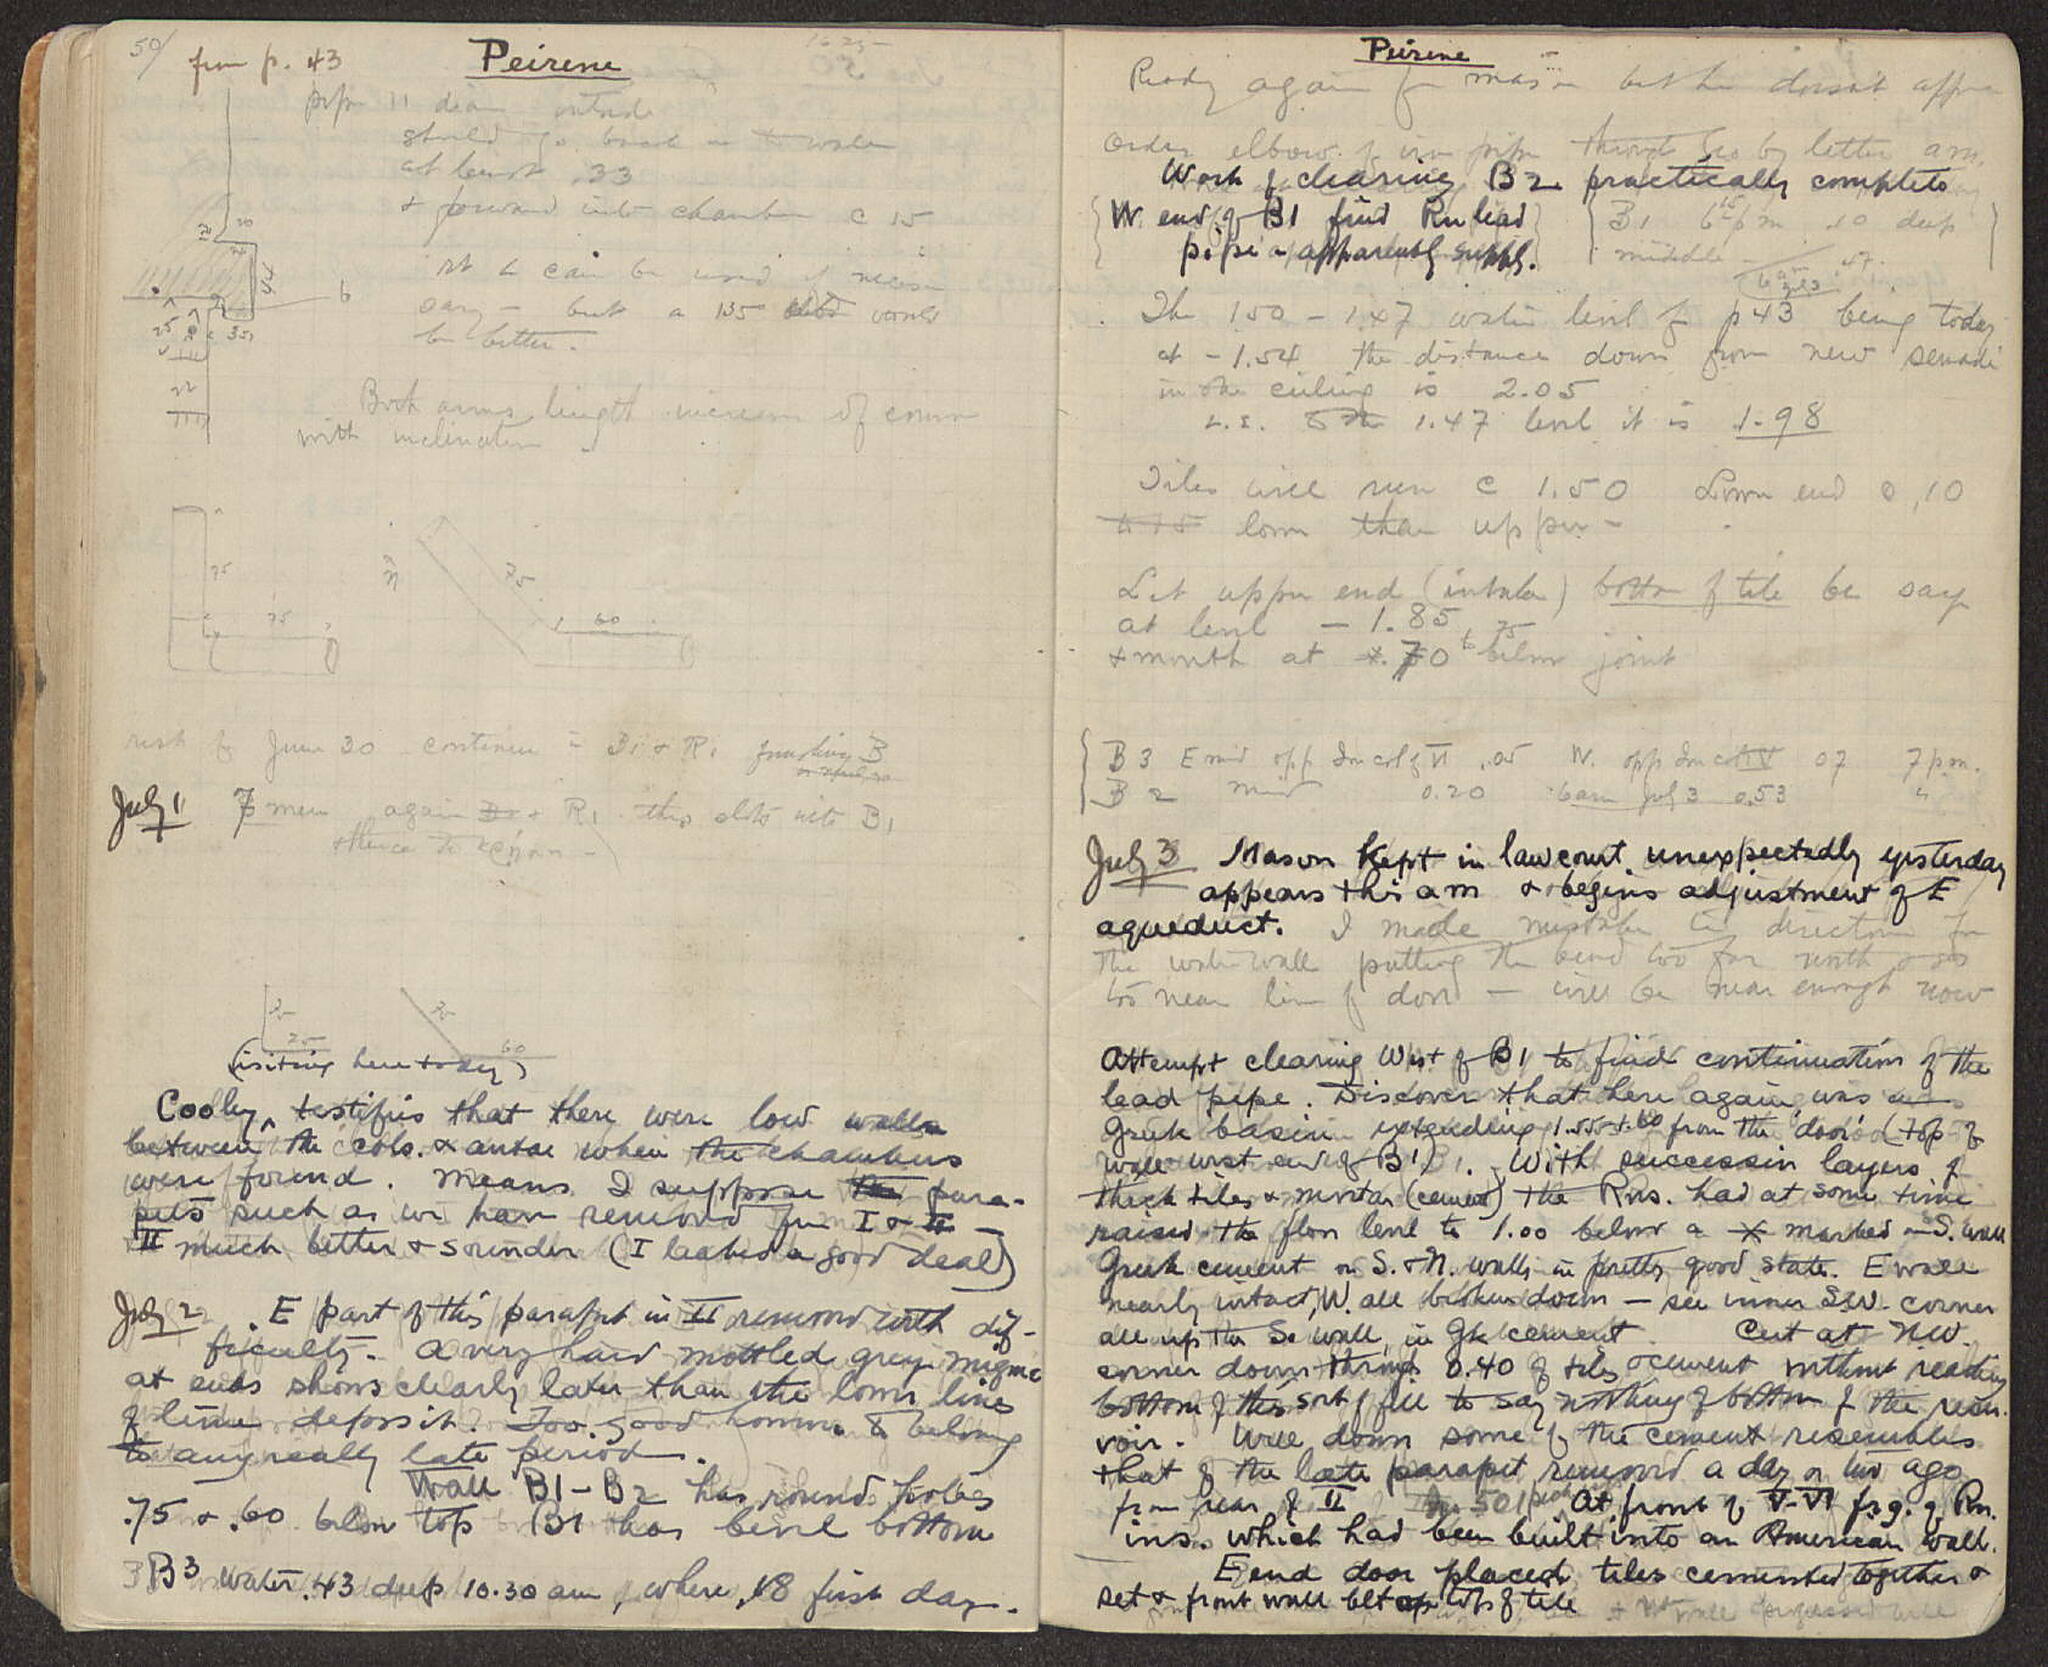 50/
from p. 43
Peirene
pipe 11 diam outside
should go back in to water
at least .33
& forward into chamber c 15
rt L can be used if neces-
sary - but a 135 would
be better -
b
25
35
22
Both arms length increase of course
with inclination
75
75
75
60
rest of June 30 continue in B1 & R1
July 1 7 men again & R1 this dirt into B1
& thence to
25
60
(visiting here today)
Cooley testifies that there were low walls
between the cols. & antae when the chambers
were found. Means I suppose the para-
pets such as we have removed from I & II -
II much better & sounder (I leaked a good deal)
July 2 . E part of this parapet in II removed with dif-
ficulty. A very hard mottled grey migma
at ends shows clearly later than the lower lines
of lime deposit. Too good however to belong
to any really late period.
Wall B1-B2 has round holes
.75 & .60 below top B1 has bevel bottom
B3 water .43 deep 10.30 am, where .18 first day.
Peirene
Ready again for mason but he doesn't appear
Order elbow of iron pipe through Geo by letter a.m.
Work of clearing B2 practically complete
W. end of B1 find Rn lead
pipe in apparently supply.
B1 6 15 pm .10 deep
middle
6 am .47
The 1.50 - 1.47 water level of p 43 being today
at - 1.54 the distance down from new
in the ceiling is 2.05
i.e. to the 1.47 level it is 1.98
Tiles will run c 1.50 Lower end 0,10
to 15 lower than upper -
Let upper end (intake) bottom of tile be say
at level - 1.85
& mouth at 70 to 75 below joint
B3 E mid opp Ion col of VI .05 W. opp Ion col IV 07 7 pm.
B2 mid 0.20 6 am July 3 0.53 "
July 3 Mason kept in lawcourt unexpectedly yesterday
appears this am & begins adjustment of E
aqueduct. I made mistake in direction for
the water wall putting the bend too far north
too near line of door - will be near enough now
Attempt clearing West of B1 to find continuation of the
lead pipe. Discover that here again was a
Greek basin extending 1.55-1.60 from the 'door' (top of
wall west end of B1). With succession layers of
thick tiles & mortar (cement) the Rns. had at some time
raised the floor level to 1.00 below a X marked in S. wall
Greek cement on S. & N. walls in pretty good state. E wall
nearly intact, W. all broken down - see inner S.W. corner
all up the So wall, in Gk cement. Cut at N.W.
corner down through 0.40 of tiles & cement without reaching
bottom of this sort of fill to say nothing of bottom of the reser-
voir. Well down some of the cement resembles
that of the late parapet removed a day or two ago
from rear of II At front of V-VI frg. of Rn.
ins. which had been built into an American wall.
E end door placed, tiles cemented together &
set & front wall blt up to top of tile